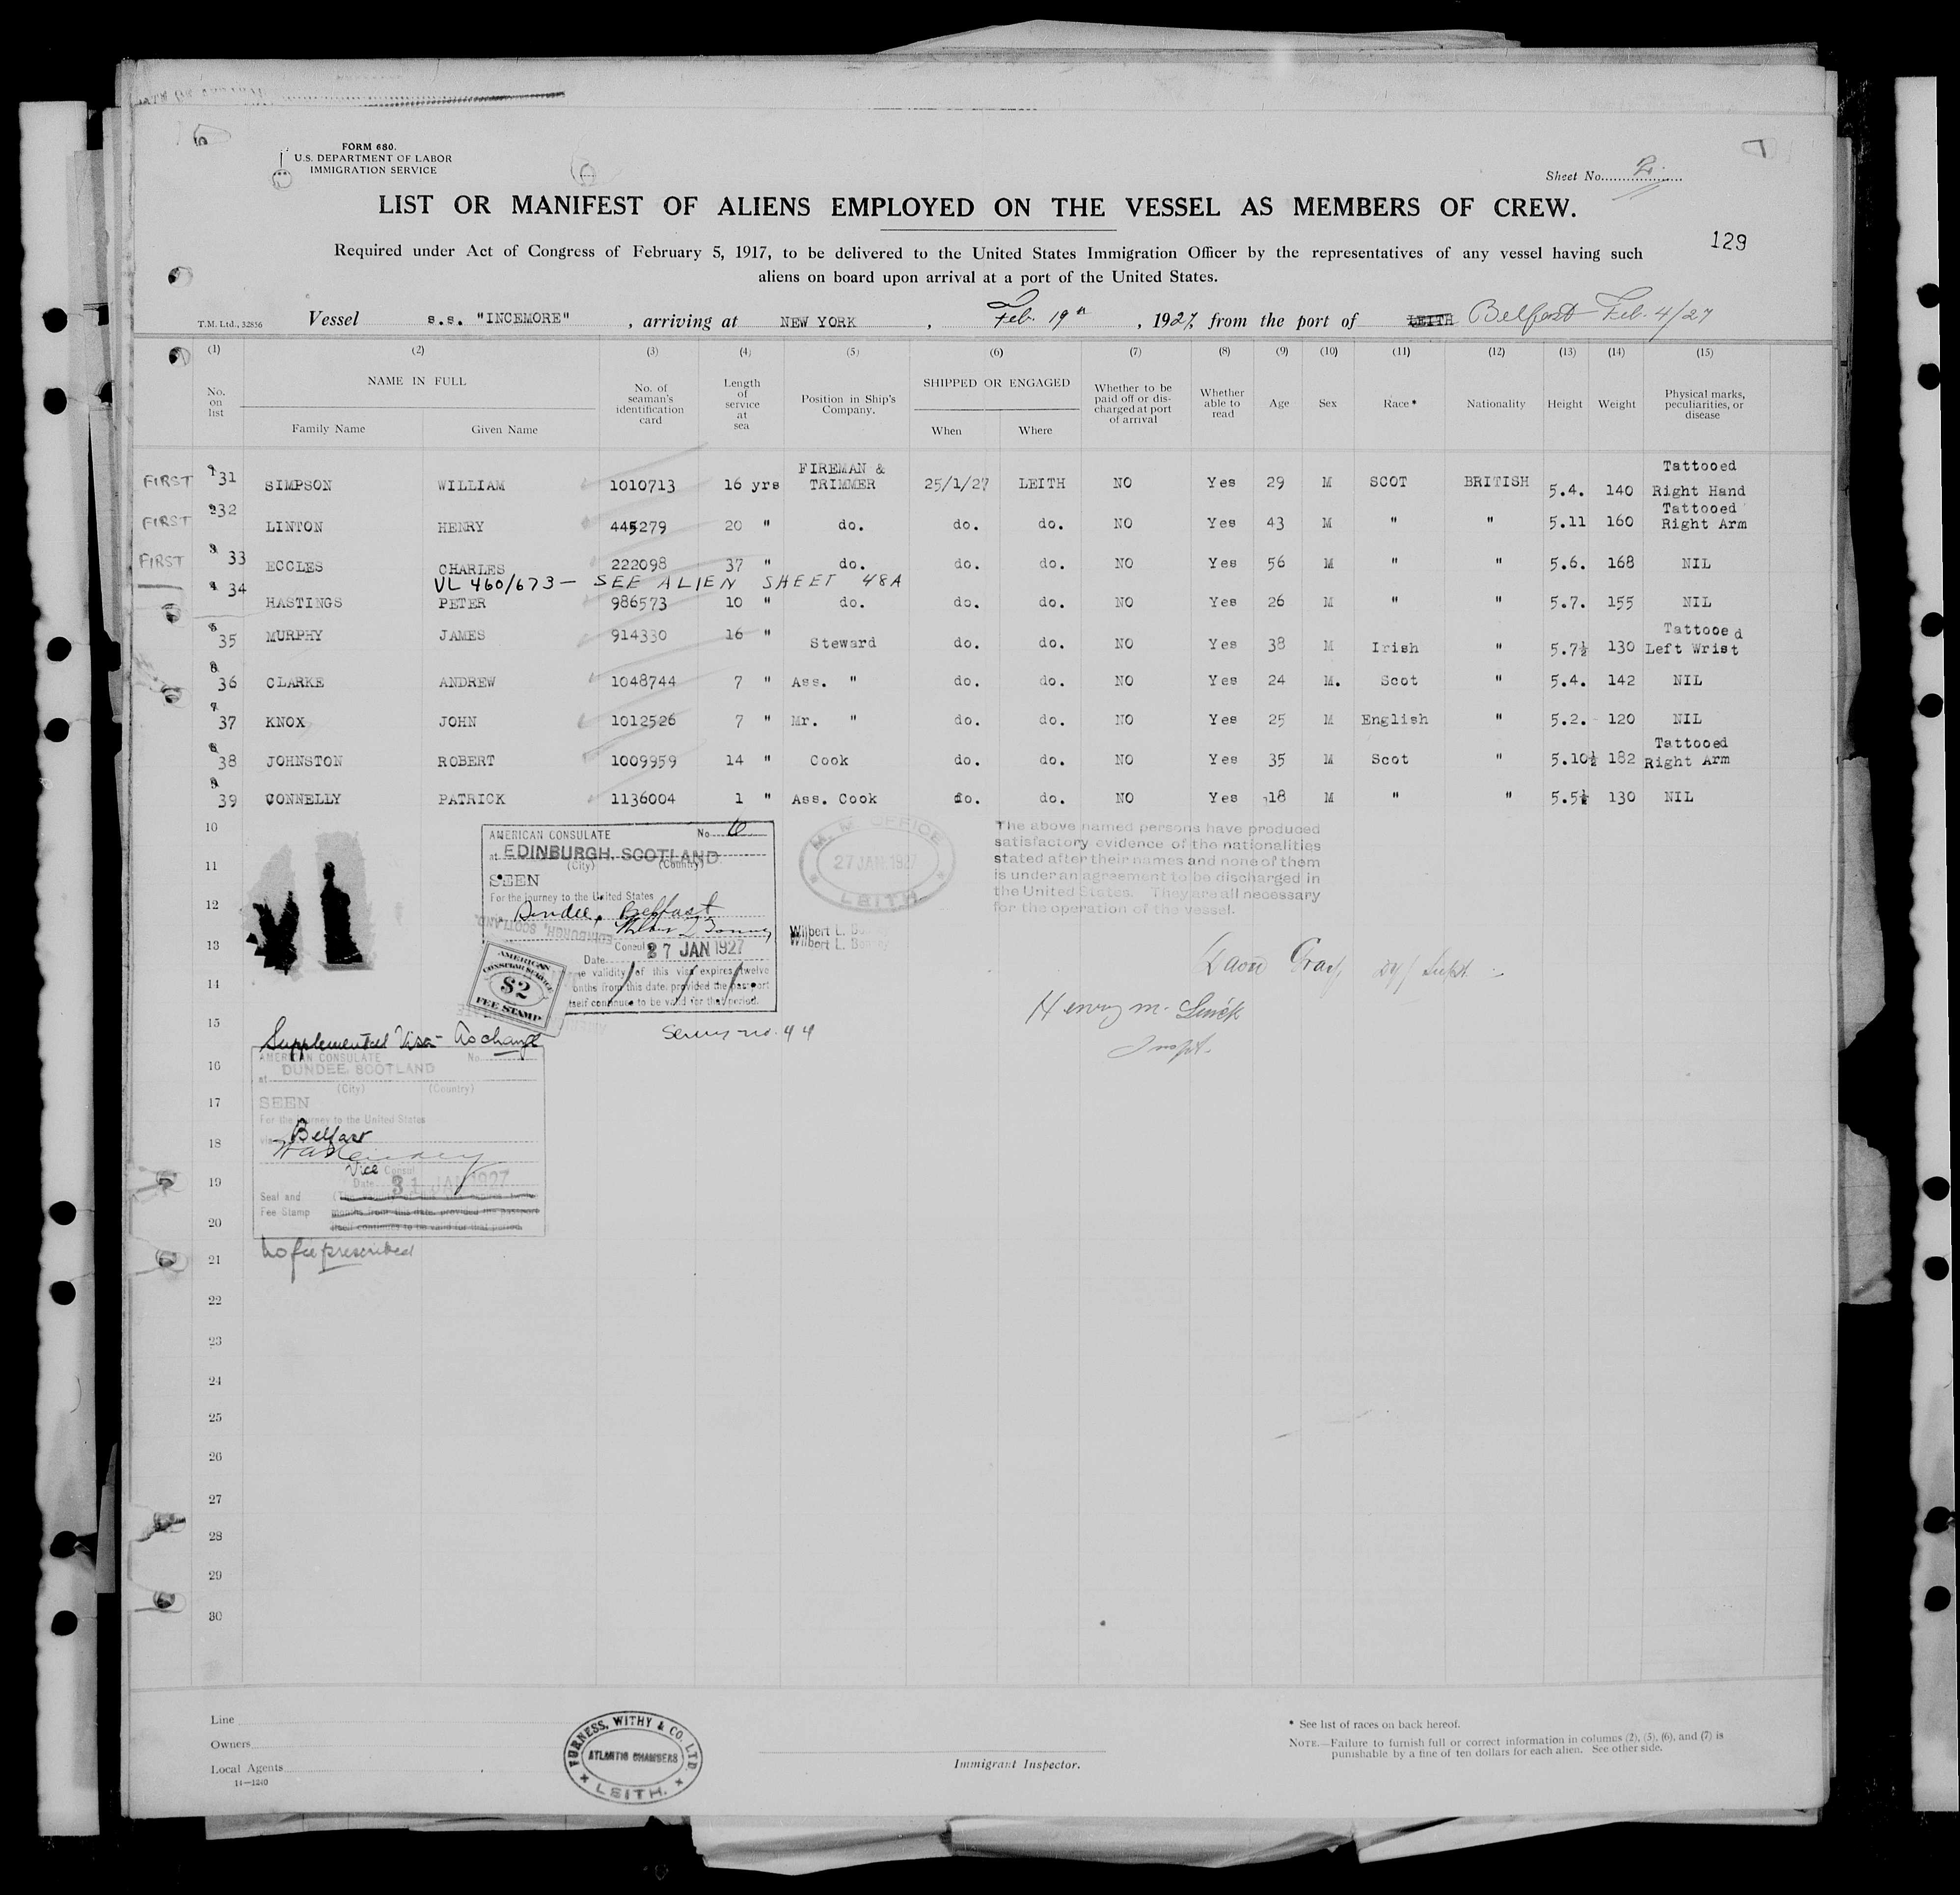 FORM 680.
U.S. DEPARTMENT OF LABOR
IMMIGRATION SERVICE
Sheet No. 2.
LIST OR MANIFEST OF ALIENS EMPLOYED ON THE VESSEL AS MEMBERS OF CREW.
129
Required under Act of Congress of February 5, 1917, to be delivered to the United States Immigration Officer by the representatives of any vessel having such
aliens on board upon arrival at a port of the United States.
T.M. Ltd., 32856 Vessel s.s. "INCEMORE" , arriving at NEW YORK , Feb. 19th , 1927, from the port of LEITH Belfast Feb. 4/27
(1) (2) (3) (4) (5) (6) (7) (8) (9) (10) (11) (12) (13) (14) (15)
No. on list NAME IN FULL Family Name Given Name No. of seaman's identification card Length of service at sea Position in Ship's Company. SHIPPED OR ENGAGED When Where Whether to be paid off or discharged at port of arrival Whether able to read Age Sex Race* Nationality Height Weight Physical marks, peculiarities, or disease
FIRST 1 31 SIMPSON WILLIAM 1010713 16 yrs FIREMAN & TRIMMER 25/1/27 LEITH NO Yes 29 M SCOT BRITISH 5.4. 140 Tattooed Right Hand
FIRST 2 32 LINTON HENRY 445279 20 " do. do. do. NO Yes 43 M " " 5.11 160 Tattooed Right Arm
FIRST 3 33 ECCLES CHARLES 222098 37 " do. do. do. NO Yes 56 M " " 5.6. 168 NIL
VL 460/673 — SEE ALIEN SHEET 48A
4 34 HASTINGS PETER 986573 10 " do. do. do. NO Yes 26 M " " 5.7. 155 NIL
5 35 MURPHY JAMES 914330 16 " Steward do. do. NO Yes 38 M Irish " 5.7½ 130 Tattooed Left Wrist
6 36 CLARKE ANDREW 1048744 7 " Ass. " do. do. NO Yes 24 M. Scot " 5.4. 142 NIL
7 37 KNOX JOHN 1012526 7 " Mr. " do. do. NO Yes 25 M English " 5.2. 120 NIL
8 38 JOHNSTON ROBERT 1009959 14 " Cook do. do. NO Yes 35 M Scot " 5.10½ 182 Tattooed Right Arm
9 39 CONNELLY PATRICK 1136004 1 " Ass. Cook do. do. NO Yes 18 M " " 5.5½ 130 NIL
10
11
12
13
14
15
16
17
18
19
20
21
22
23
24
25
26
27
28
29
30
AMERICAN CONSULATE No. 6
at EDINBURGH, SCOTLAND
(City) (Country)
SEEN
For the journey to the United States
Dundee, Belfast
Consul
Date 27 JAN 1927
The validity of this visa expires twelve
months from this date, provided the passport
itself continues to be valid for that period.
AMERICAN
CONSULAR SERVICE
$2
FEE STAMP
M. M. OFFICE
27 JAN 1927
LEITH
Wilbert L.
Wilbert L.
The above named persons have produced
satisfactory evidence of the nationalities
stated after their names and none of them
is under an agreement to be discharged in
the United States. They are all necessary
for the operation of the vessel.
Henry M.
Inspt.
no. 44
Supplemental Visa - No charge
AMERICAN CONSULATE No.
at DUNDEE, SCOTLAND
(City) (Country)
SEEN
For the journey to the United States
via Belfast
Vice Consul
Date 31 JAN 1927
Seal and
Fee Stamp
months from this date, provided the passport
itself continues to be valid for that period.
No fee prescribed
Line
Owners
Local Agents
14—1240
FURNESS, WITHY & CO. LTD.
ATLANTIC CHAMBERS
LEITH.
Immigrant Inspector.
* See list of races on back hereof.
NOTE.—Failure to furnish full or correct information in columns (2), (5), (6), and (7) is
punishable by a fine of ten dollars for each alien. See other side.